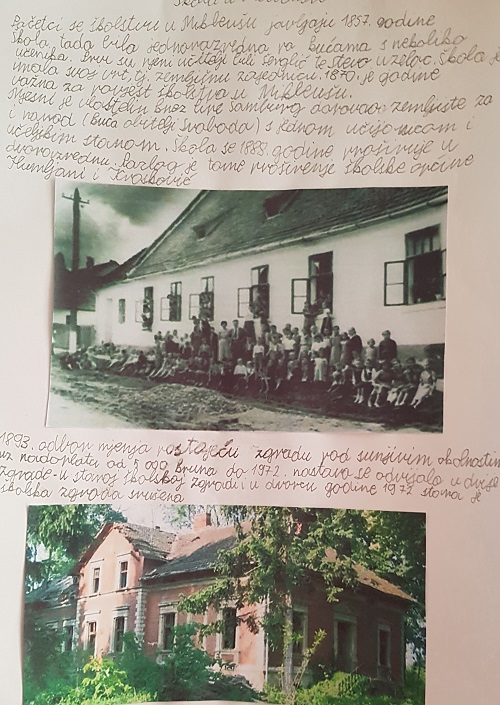 Početci se školstva u Mikleušu javljaju 1857. godine
škola tada bila jednorazredna po kućama s nekoliko
učenika. Prvi su njeni učitelji bili te Stevo Uzelac. Škola je
imala svoj vrt, tj. zemljišnu zajednicu. 1870. je godine
važna za povijest školstva u Mikleušu.
Mjesni je vlastelin knez Lippe Šamburg darovao zemljište za
i navod (kuća obitelji Svoboda) s jednom učionicom i
učiteljskim stanom. Škola se 1888. godine proširuje u
dvorazrednu. Razlog je tome proširenje školske općine
Humljani i Krasković
1893. odbor mjenja postojeću zgradu pod sumljivim okolnostima
uz nadoplatu od 5 000 kruna do 1972. nastava se odvijala u dvije
zgrade - u staroj školskoj zgradi i u dvorcu godine 1972 stara je
školska zgrada srušena